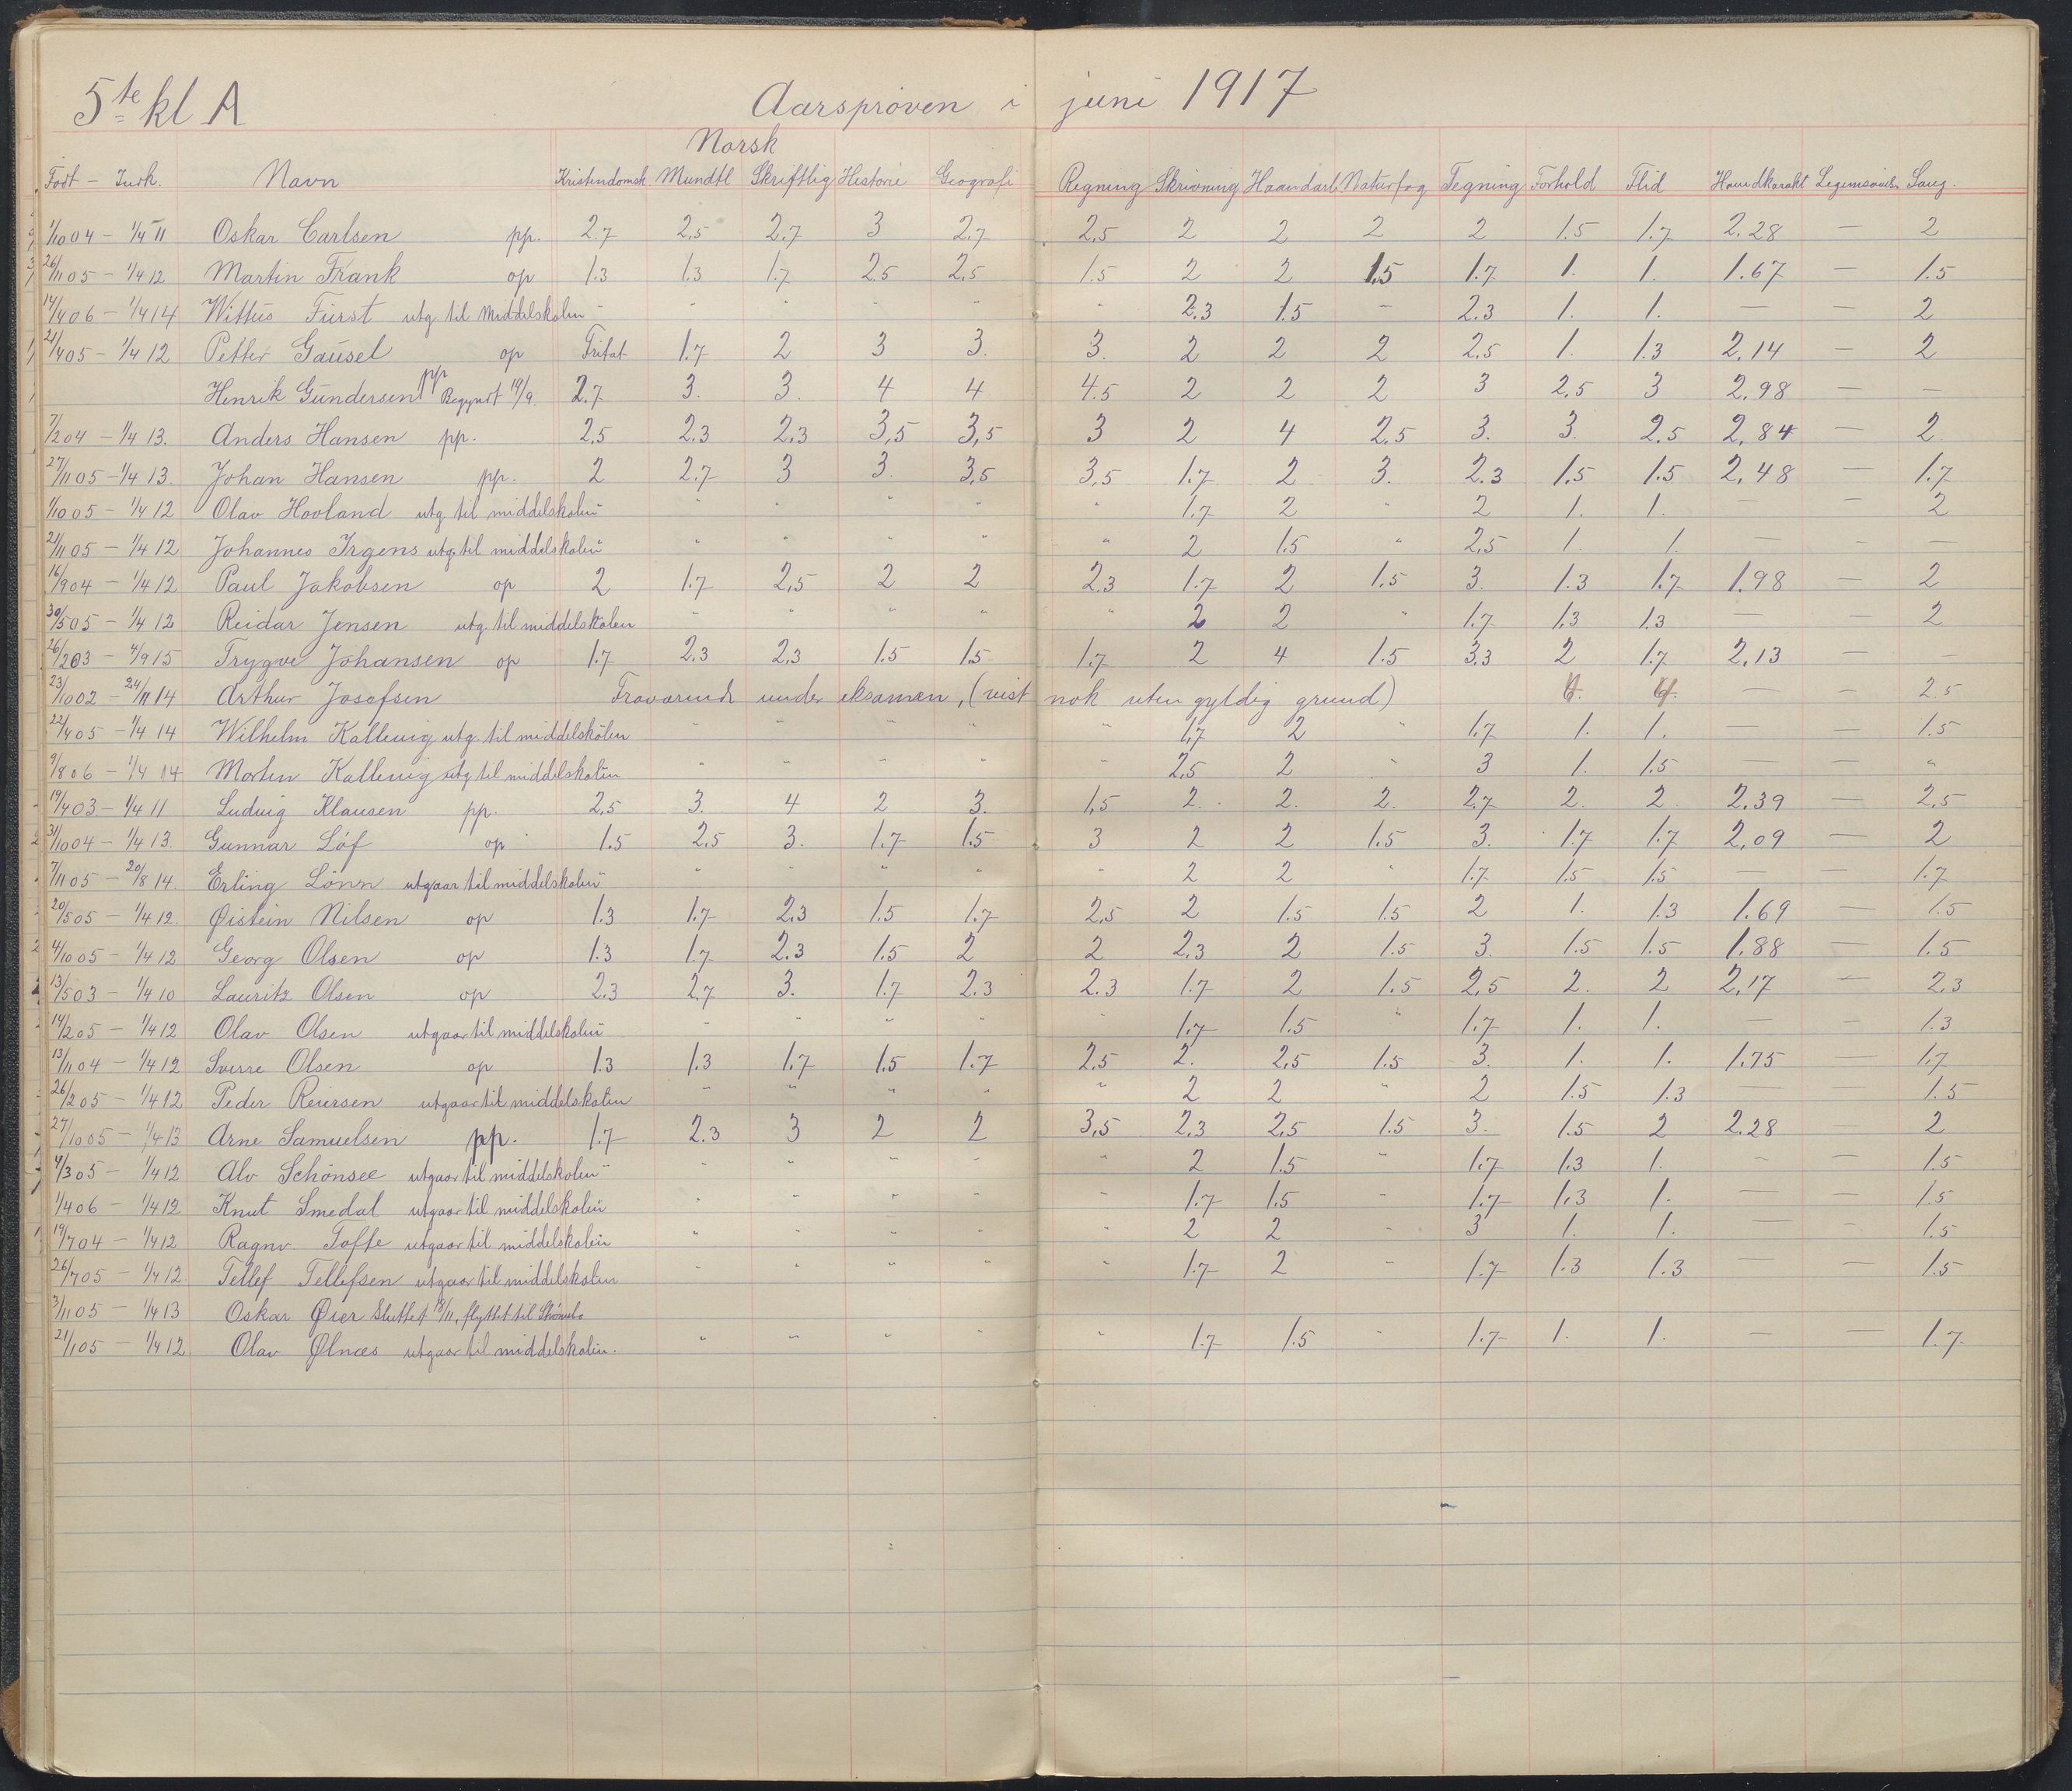 5te kl A Aarsprøven i juni 1917
Norsk
Født – Indk. Navn Kristendomsk Mundtl Skriftlig Historie Geografi Regning Skrivning Haandarb Naturfag Tegning Forhold Flid Hovedkarakt Legemsøvels Sang.
1/10 04 – 1/4 11 Oskar Carlsen pp. 2.7 2,5 2.7 3 2.7 2,5 2 2 2 2 1.5 1.7 2.28 — 2
26/11 05 – 1/4 12 Martin Frank op 1.3 1.3 1.7 2.5 2.5 1.5 2 2 1.5 1.7 1. 1. 1.67 — 1.5
14/4 06 – 1/4 14 Wittus Fürst utg. til Middelskolen - " - " - " 2.3 1.5 – 2.3 1. 1. — — 2
21/4 05 – 1/4 12 Petter Gausel op Fritat 1.7 2 3 3. 3. 2 2 2 2,5 1. 1.3 2,14 — 2
Henrik Gundersen pp Begyndt 19/9. 2.7 3. 3. 4 4 4.5 2 2 2 3 2,5 3 2,98 — —
7/2 04 – 1/4 13. Anders Hansen pp. 2,5 2.3 2,3 3,5 3,5 3 2 4 2,5 3. 3. 2.5 2,84 — 2
27/11 05 – 1/4 13. Johan Hansen pp. 2 2.7 3 3. 3,5 3,5 1.7 2 3. 2.3 1.5 1.5 2,48 — 1.7
1/10 05 – 1/4 12 Olav Hovland utg. til middelskolen " " " " " 1.7 2 " 2 1. 1. — — 2
21/11 05 – 1/4 12 Johannes Irgens utg. til middelskolen " " " " " 2 1.5 " 2,5 1. 1. — – —
16/9 04 – 1/4 12 Paul Jakobsen op 2 1.7 2,5 2 2 2.3 1.7 2 1.5 3. 1.3 1.7 1.98 — 2
30/5 05 – 1/4 12 Reidar Jensen utg. til middelskolen " " " " " 2 2 " 1.7 1.3 1.3 — — 2
26/2 03 – 4/9 15 Trygve Johansen op 1.7 2.3 2,3 1.5 1.5 1.7 2 4 1.5 3.3 2 1.7 2,13 — —
23/10 02 – 24/11 14 Arthur Josefsen Fraværende under eksamen, (vist nok uten gyldig grund) — — 2.5
22/4 05 – 1/4 14 Wilhelm Kallevig utg. til middelskolen " " " " " 1,7 2 " 1.7 1. 1. — — 1.5
9/8 06 – 1/4 14 Morten Kallevig utg til middelskolen " " " " " 2,5 2 " 3 1. 1.5 — — "
19/4 03 – 1/4 11 Ludvig Klausen pp. 2,5 3. 4 2 3. 1,5 2. 2. 2. 2.7 2. 2. 2,39 — 2,5
31/10 04 – 1/4 13. Gunnar Løf op 1.5 2,5 3. 1.7 1.5 3 2 2 1.5 3. 1.7 1.7 2,09 — 2
7/11 05 – 20/8 14. Erling Lønn utgaar til middelskolen " " " " " 2 2 " 1.7 1.5 1.5 — — 1.7
20/5 05 – 1/4 12. Øistein Nilsen op 1.3 1.7 2.3 1.5 1.7 2,5 2 1.5 1.5 2 1. 1.3 1.69 — 1.5
4/10 05 – 1/4 12 Georg Olsen op 1.3 1.7 2.3 1.5 2 2 2,3 2 1.5 3. 1.5 1.5 1.88 — 1.5
13/5 03 – 1/4 10 Lauritz Olsen op 2.3 2,7 3. 1.7 2.3 2.3 1.7 2 1.5 2,5 2. 2 2,17 — 2,3
14/2 05 – 1/4 12 Olav Olsen utgaar til middelskolen " " " " " 1.7 1.5 " 1.7 1. 1. — — 1.3
13/11 04 – 1/4 12 Sverre Olsen op 1.3 1.3 1.7 1.5 1.7 2.5 2. 2,5 1.5 3. 1. 1. 1.75 — 1.7
26/2 05 – 1/4 12 Peder Reiersen utgaar til middelskolen " " " " " 2 2 " 2 1.5 1.3 — — 1.5
27/10 05 – 1/4 13 Arne Samuelsen pp. 1.7 2.3 3 2 2 3,5 2,3 2,5 1.5 3. 1.5 2 2.28 — 2
4/3 05 – 1/4 12 Alv Schønsee utgaar til middelskolen " " " " " 2 1.5 " 1.7 1.3 1. – — 1.5
1/4 06 – 1/4 12 Knut Smedal utgaar til middelskolen " " " " " 1.7 1.5 – 1.7 1.3 1. — — 1.5
19/7 04 – 1/4 12 Ragnv. Toffe utgaar til middelskolen " " " " " 2 2 – 3 1. 1. — — 1.5
26/7 05 – 1/4 12 Tellef Tellefsen utgaar til middelskolen " " " " " 1.7 2 " 1.7 1.3 1.3 — — 1.5
3/11 05 – 1/4 13 Oskar Øier Sluttet 18/11, flyttet til
21/1 05 – 1/4 12 Olav Ølnæs utgaar til middelskolen. " " " " " 1.7 1.5 " 1.7 1. 1. — — 1.7